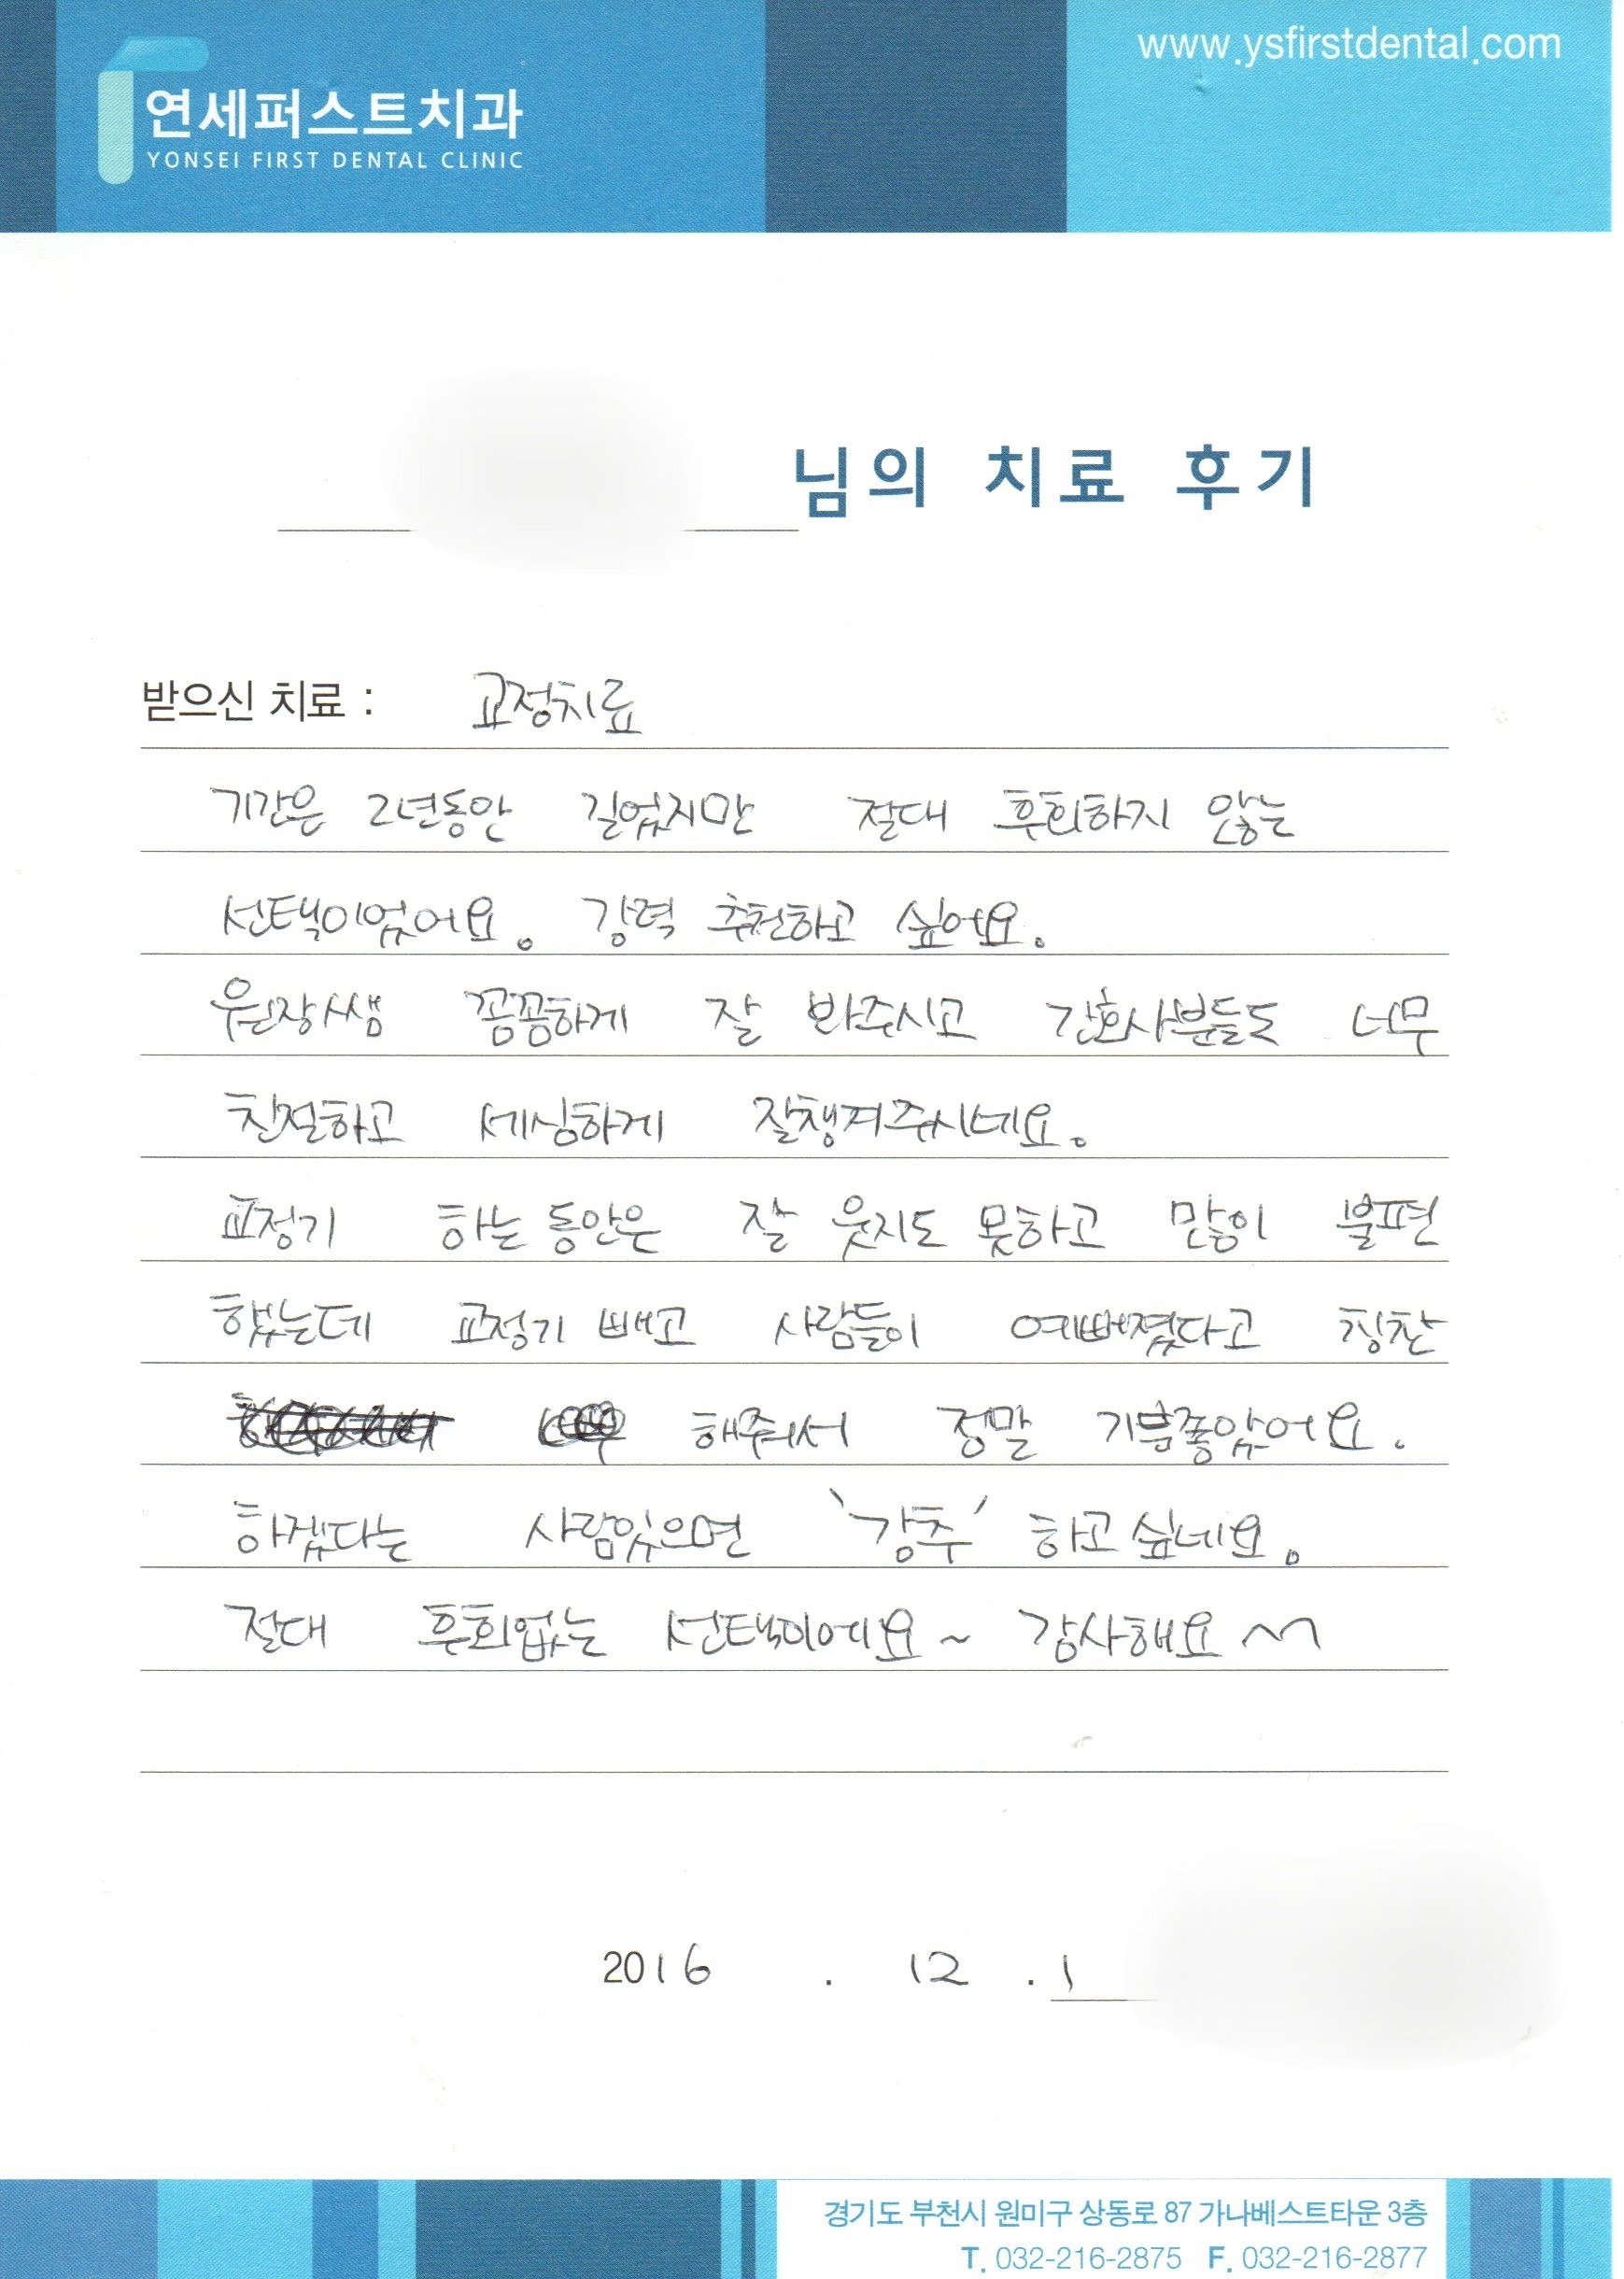 www.ysfirstdental.com
연세퍼스트치과
YONSEI FIRST DENTAL CLINIC
님의 치료 후기
받으신 치료 : 교정치료
기간은 2년동안 길었지만 절대 후회하지 않는
선택이었어요. 강력 추천하고 싶어요.
원장쌤 꼼꼼하게 잘 봐주시고 간호사분들도 너무
친절하고 세심하게 잘챙겨주시네요.
교정기 하는 동안은 잘 웃지도 못하고 많이 불편
했는데 교정기 빼고 사람들이 예뻐졌다고 칭찬
해줘서 정말 기분좋았어요.
하겠다는 사람있으면 '강추' 하고 싶네요.
절대 후회없는 선택이에요~ 감사해요 ^^
2016 . 12 . 1
경기도 부천시 원미구 상동로 87 가나베스트타운 3층
T. 032-216-2875 F. 032-216-2877